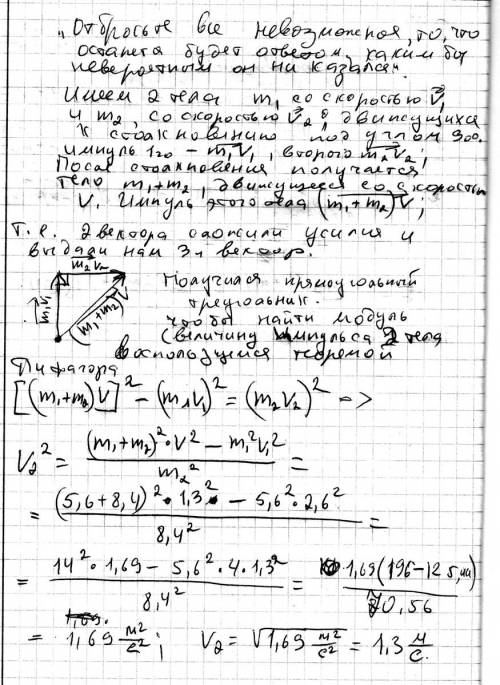 „Отбросьте все невозможная, то, что
останется будет ответом, каким бы
невероятным он ни казался".
Имеем 2 тела m₁ со скоростью V⃗₁
и m₂, со скоростью V⃗₂, движущихся
к столкновению под углом 90°.
импульс 1го – m₁V⃗₁, второго m₂V⃗₂;
После столкновения получается
тело m₁+m₂, движущееся со скоростью
V. Импульс этого тела (m₁+m₂)V⃗;
Т.е. 2 вектора сложили усилия и
выдали нам 3й вектор.
m₂V₂
m₁V₁
(m₁+m₂)V
Получился прямоугольный
треугольник.
чтобы найти модуль
(величину импульса 2 тела
воспользуемся теоремой
Пифагора
[(m₁+m₂)V]² – (m₁V₁)² = (m₂V₂)² =>
V₂² = ((m₁+m₂)²·V² – m₁²V₁²) / m₂² =
= ((5,6+8,4)²·1,3² – 5,6²·2,6²) / 8,4² =
= (14²·1,69 – 5,6²·4·1,3²) / 8,4² = 1,69(196–125,44) / 70,56
= 1,69 м²/с²; V₂ = √(1,69 м²/с²) = 1,3 м/с.